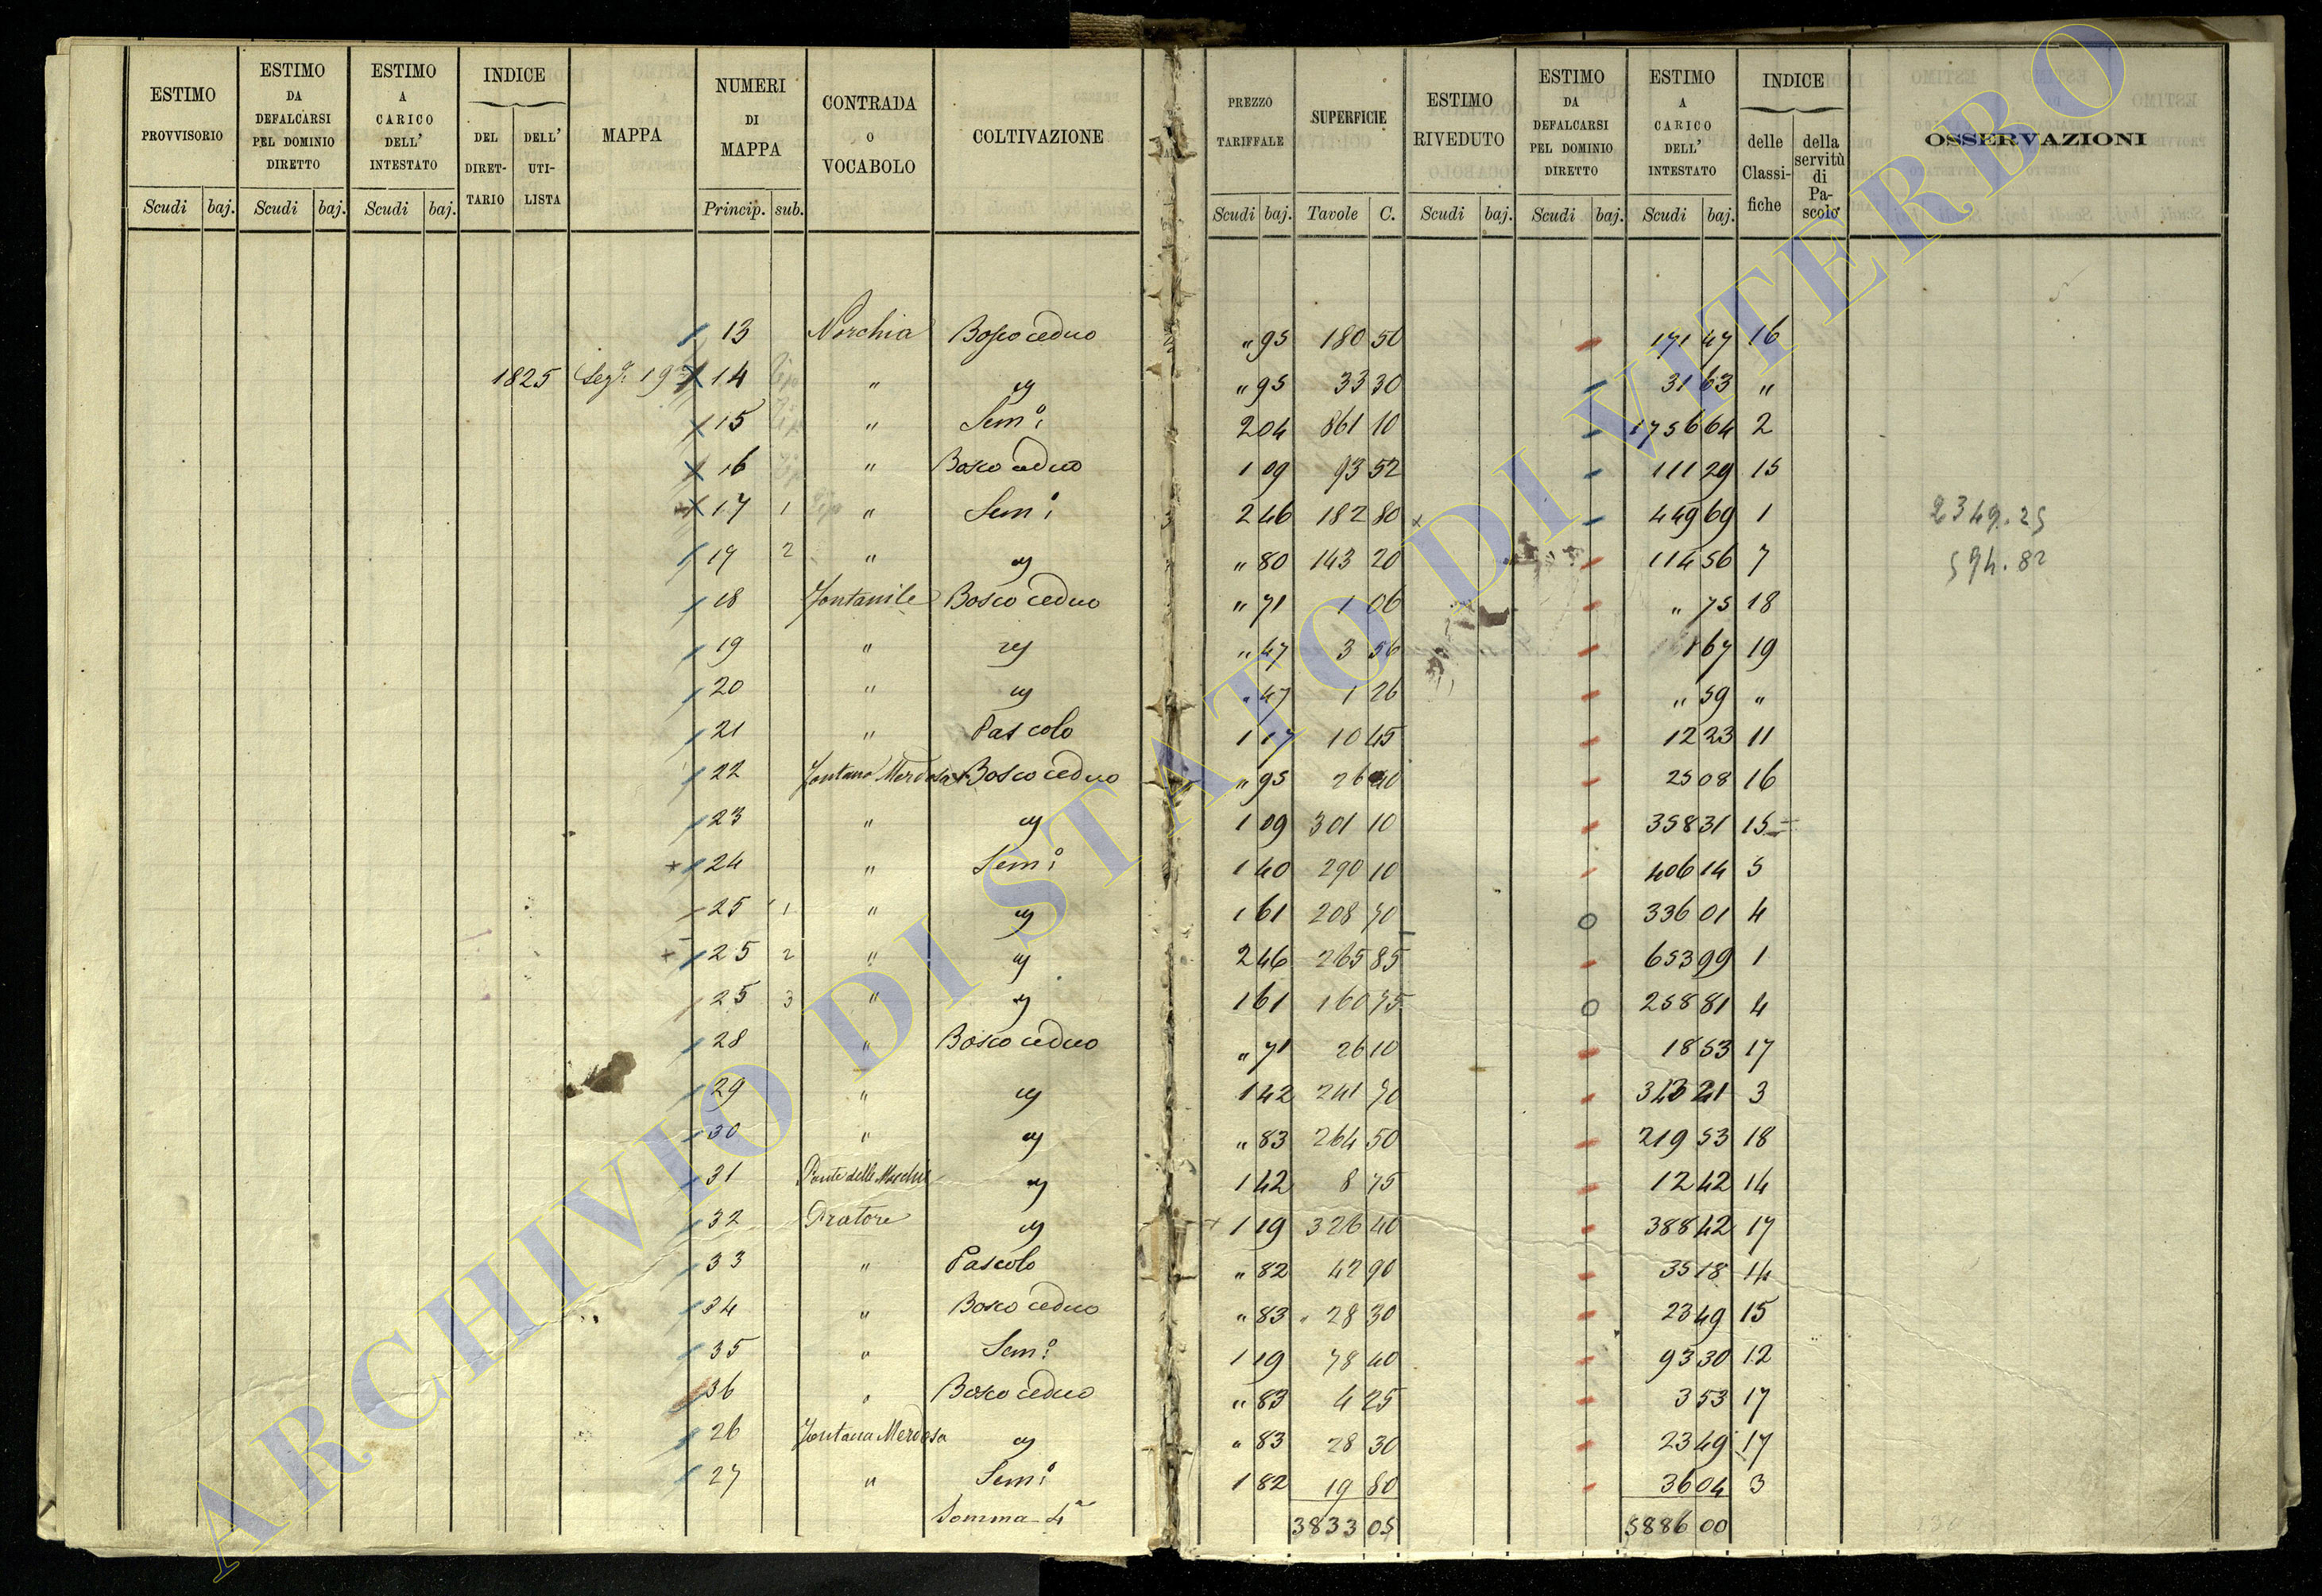 ESTIMO PROVVISORIO Scudi baj.
ESTIMO DA DEFALCARSI PEL DOMINIO DIRETTO Scudi baj.
ESTIMO A CARICO DELL' INTESTATO Scudi baj.
INDICE DEL DIRET-TARIO DELL' UTI-LISTA
MAPPA
NUMERI DI MAPPA Princip. sub.
CONTRADA O VOCABOLO
COLTIVAZIONE
PREZZO TARIFFALE Scudi baj.
SUPERFICIE Tavole C.
ESTIMO RIVEDUTO Scudi baj.
ESTIMO DA DEFALCARSI PEL DOMINIO DIRETTO Scudi baj.
ESTIMO A CARICO DELL' INTESTATO Scudi baj.
INDICE delle Classi-fiche della servitù di Pa-scolo
OSSERVAZIONI
13 Norchia Bosco ceduo " 95 180 50 171 47 16
1825 Segᵉ 19 14 " ej " 95 33 30 31 63 "
15 " Semº 2 04 861 10 1756 64 2
16 " Bosco ceduo 1 09 93 52 111 29 15
17 1 " Semº 2 46 182 80 449 69 1 2349.25
17 2 " ej " 80 143 20 114 56 7 594.82
18 Fontanile Bosco ceduo " 71 1 06 " 75 18
19 " ej " 47 3 56 1 67 19
20 " ej " 47 1 26 " 59 "
21 " Pascolo 1 17 10 45 12 23 11
22 Fontana Merdosa Bosco ceduo " 95 26 40 25 08 16
23 " ej 1 09 301 10 358 31 15
24 " Semº 1 40 290 10 406 14 5
25 1 " ej 1 61 208 70 336 01 4
25 2 " ej 2 46 265 85 653 99 1
25 3 " ej 1 61 160 75 258 81 4
28 " Bosco ceduo " 71 26 10 18 53 17
29 " ej 1 42 241 70 343 21 3
30 " ej " 83 264 50 219 53 18
31 Ponte delle ej 1 42 8 75 12 42 14
32 Pratore ej 1 19 326 40 388 42 17
33 " Pascolo " 82 42 90 35 18 14
34 " Bosco ceduo " 83 28 30 23 49 15
35 " Semº 1 19 78 40 93 30 12
36 " Bosco ceduo " 83 4 25 3 53 17
26 Fontana Merdosa ej " 83 28 30 23 49 17
27 " Semº 1 82 19 80 36 04 3
Somma 4ª 3833 05 5886 00
ARCHIVIO DI STATO DI VITERBO